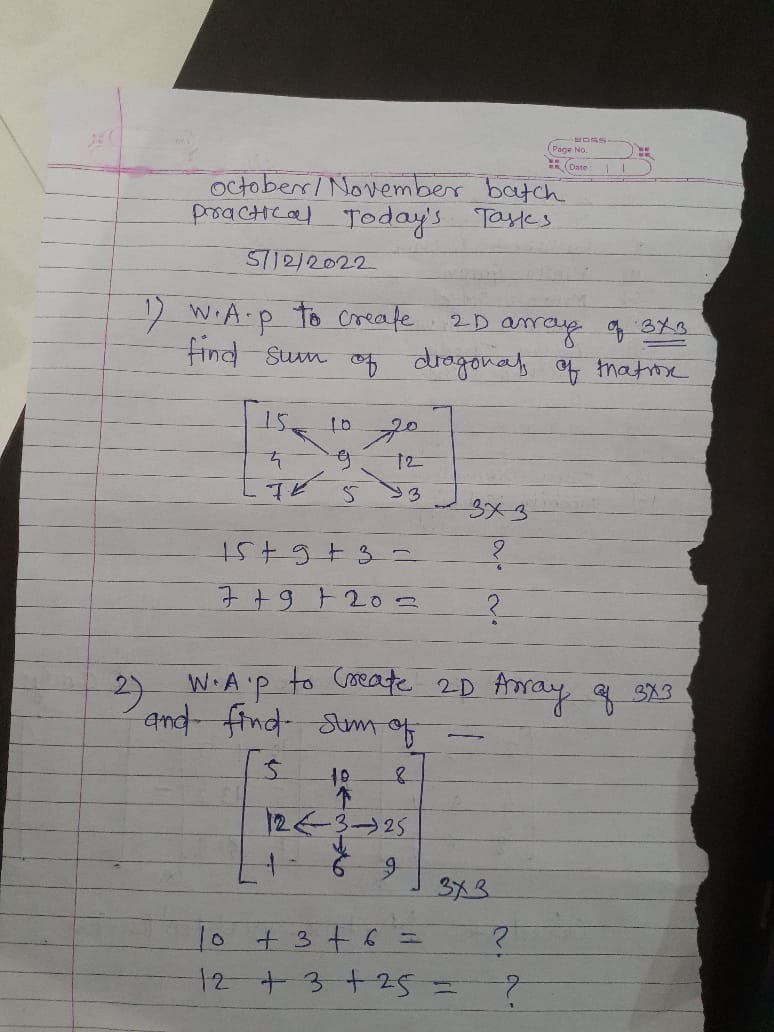 BOSS
Page No.
Date
October/November batch
practical Today's Tasks
5/12/2022
1) W.A.p to create 2D array of 3x3
find sum of diagonals of matrix
15 10 20
4 9 12
7 5 3
3x3
15 + 9 + 3 = ?
7 + 9 + 20 = ?
2) W.A.p to Create 2D Array of 3x3
and find sum of —
5 10 8
12 3 25
1 6 9
3x3
10 + 3 + 6 = ?
12 + 3 + 25 = ?